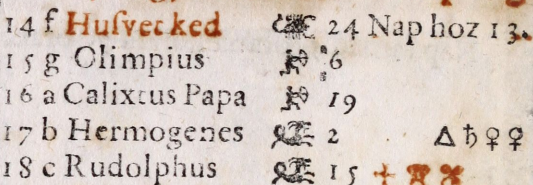 14 f Huſvecked 24 Nap hoz 13.
15 g Olimpius 6
16 a Calixtus Papa 19
17 b Hermogenes 2 △ ♄ ♀ ♀
18 c Rudolphus 15